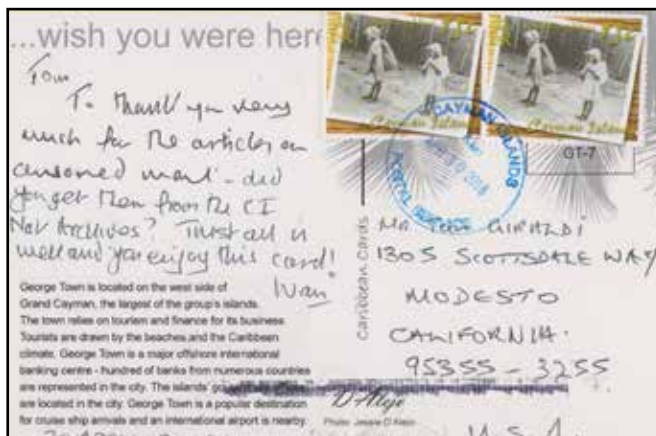 ...wish you were here
Tom
To thank you very
much for the articles on
censored mail - did
you get them from the CI
Nat Archives? Trust all is
well and you enjoy this card!
Ivan
George Town is located on the west side of
Grand Cayman, the largest of the group's islands.
The town relies on tourism and finance for its business.
Tourists are drawn by the beaches and the Caribbean
climate. George Town is a major offshore international
banking centre - hundred of banks from numerous countries
are represented in the city. The islands'
are located in the city. George Town is a popular destination
for cruise ship arrivals and an international airport is nearby.
Caribbean Cards
Cayman Islands
Cayman Islands
CAYMAN ISLANDS
POSTAL SERVICE
2018
GT-7
Mr Tom GIRALDI
1305 SCOTTSDALE WAY
MODESTO
CALIFORNIA.
95355-3255
U.S.A.
D'Alejo
Photo: